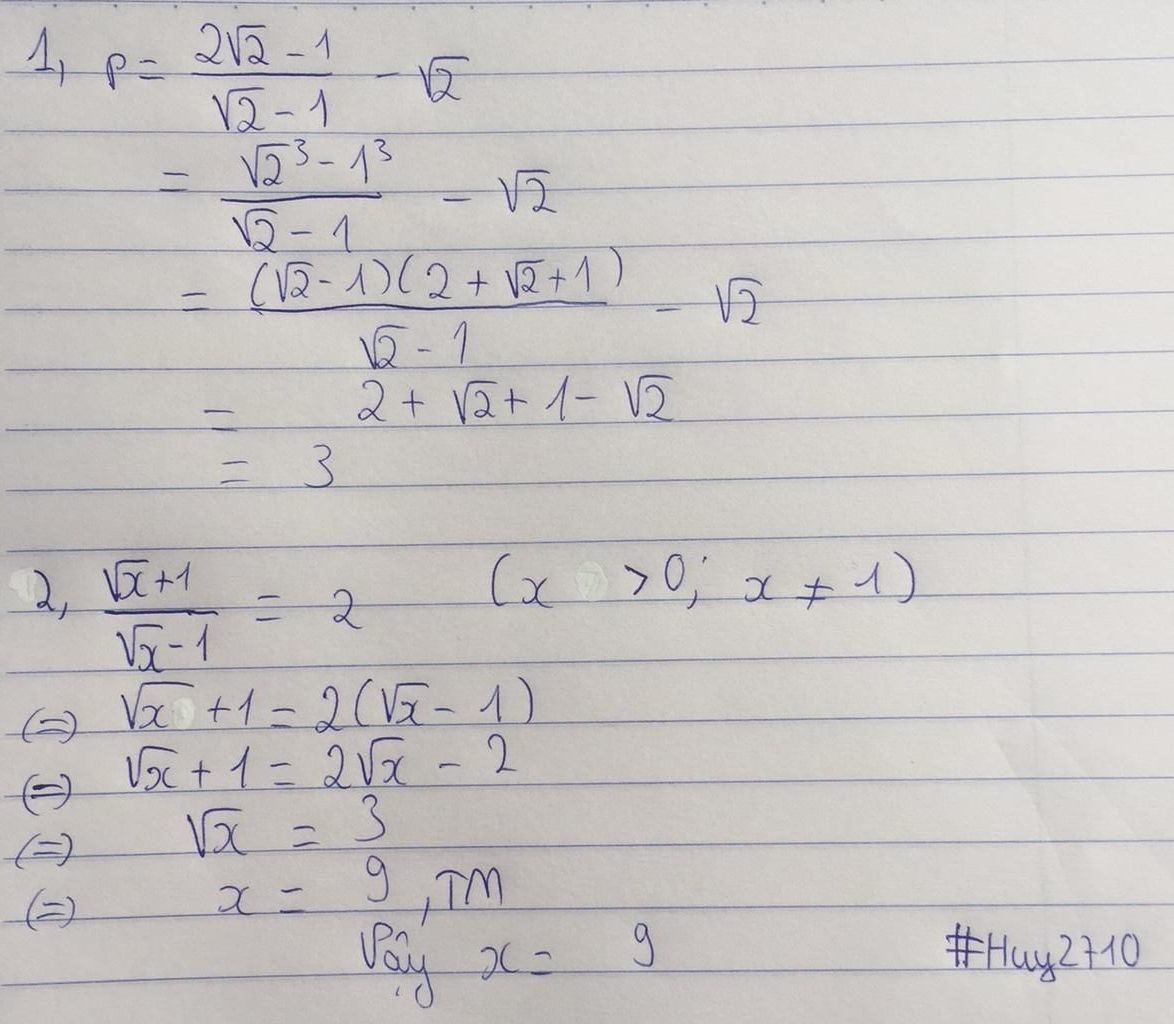 1, P = (2√2 - 1)/(√2 - 1) - √2
= (√2³ - 1³)/(√2 - 1) - √2
= ((√2 - 1)(2 + √2 + 1))/(√2 - 1) - √2
= 2 + √2 + 1 - √2
= 3
2, (√x + 1)/(√x - 1) = 2 (x > 0; x ≠ 1)
(=) √x + 1 = 2(√x - 1)
(=) √x + 1 = 2√x - 2
(=) √x = 3
(=) x = 9, TM
Vậy x = 9
#Huy2710